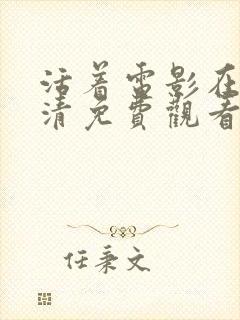 活着電影在
清免費觀看
任秉文